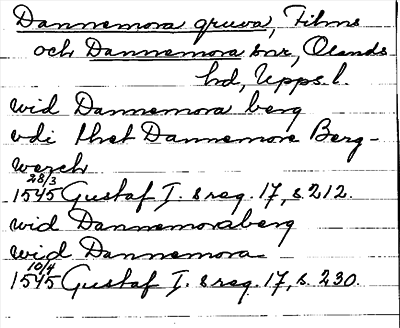 Dannemora gruva, Films
och Dannemora snr, Olands
hd, Upps. l.
wid Dannemora berg
vdi thet Dannemora Berg-
werch
28/3
1545 Gustaf I. s reg. 17, s. 212.
wid Dannemoraberg
wid Dannemora
10/4
1545 Gustaf I. s reg. 17, s. 230.